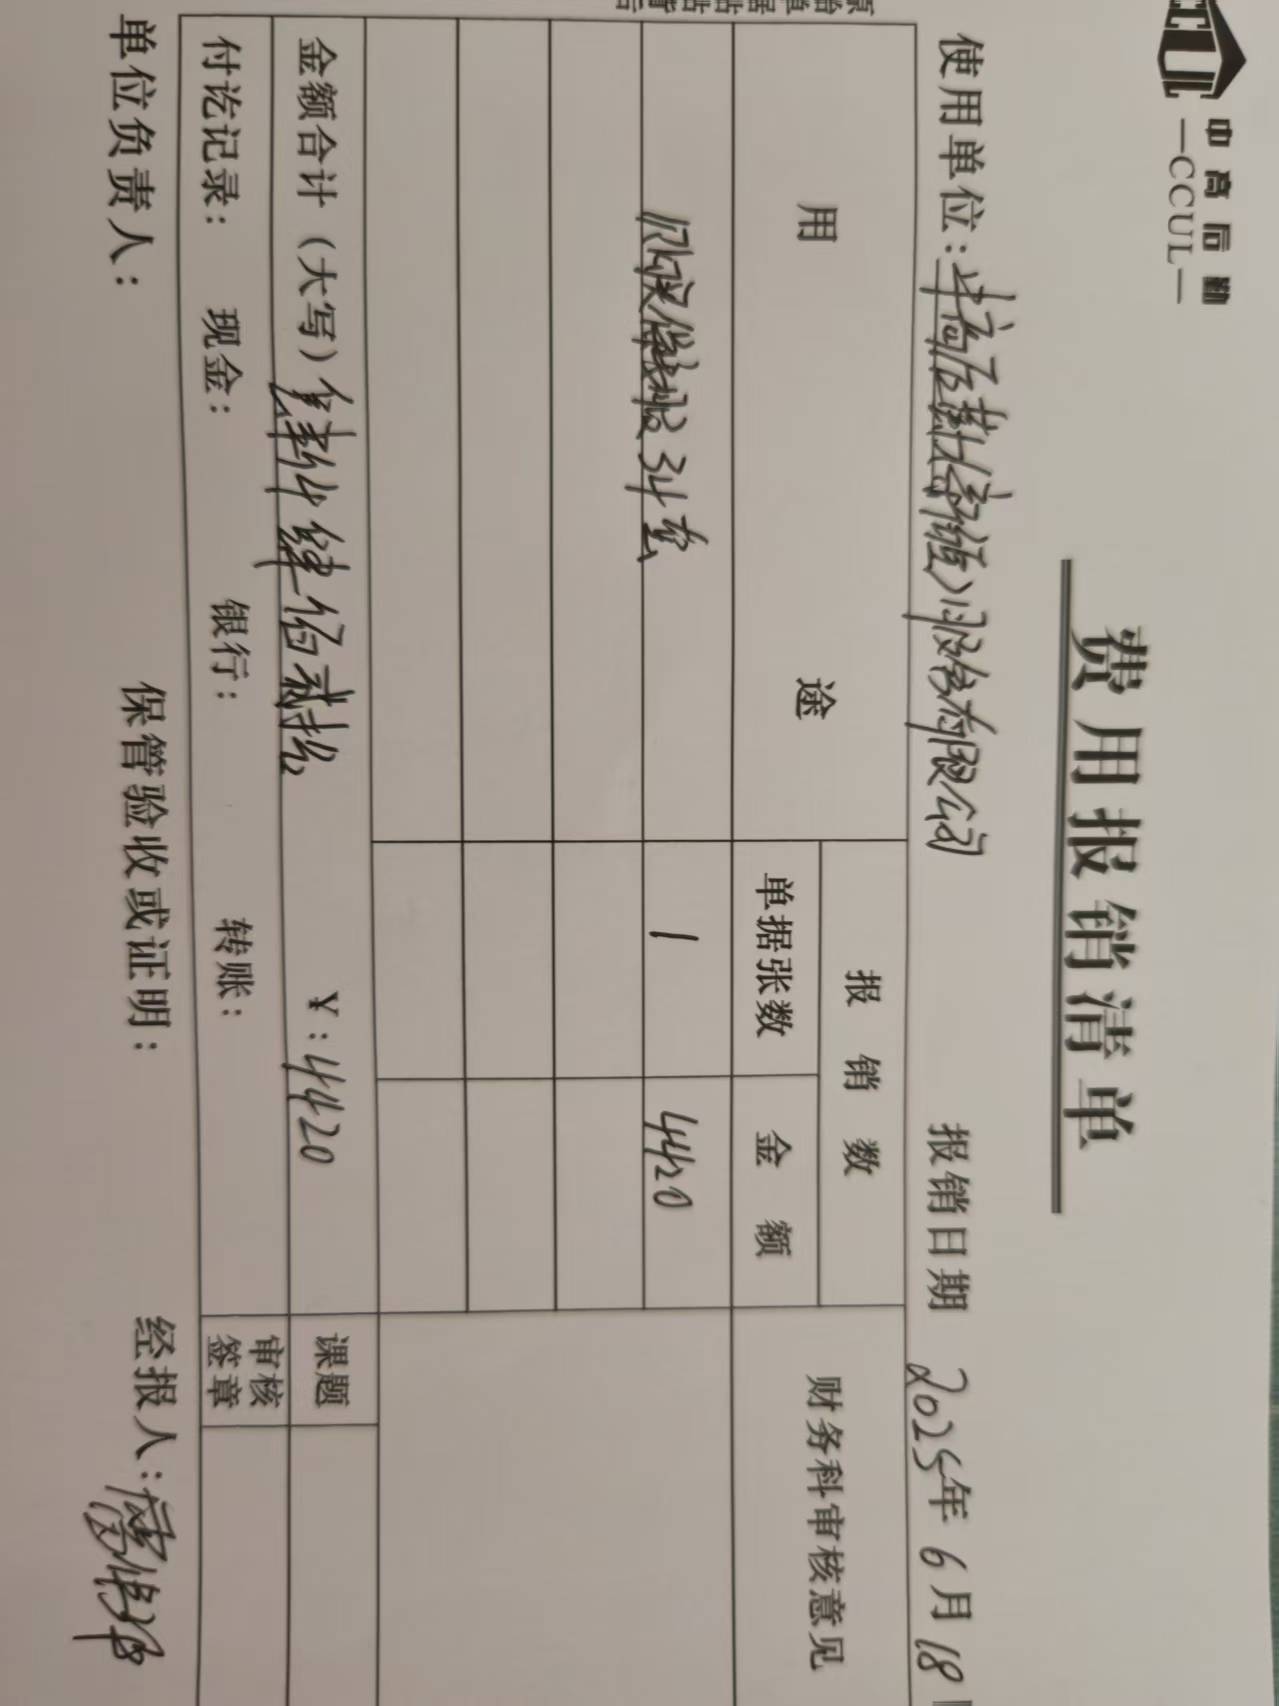 中高后勤
—CCUL—
费用报销清单
使用单位：中高后勤 有限公司 报销日期 2025年6月18
用 途 报销数 财务科审核意见
单据张数 金额
保 服34套 1 4420
金额合计（大写） 肆仟肆佰贰拾 ￥：4420 课题
付讫记录： 现金： 银行： 转账： 审核签章
单位负责人： 保管验收或证明： 经报人：